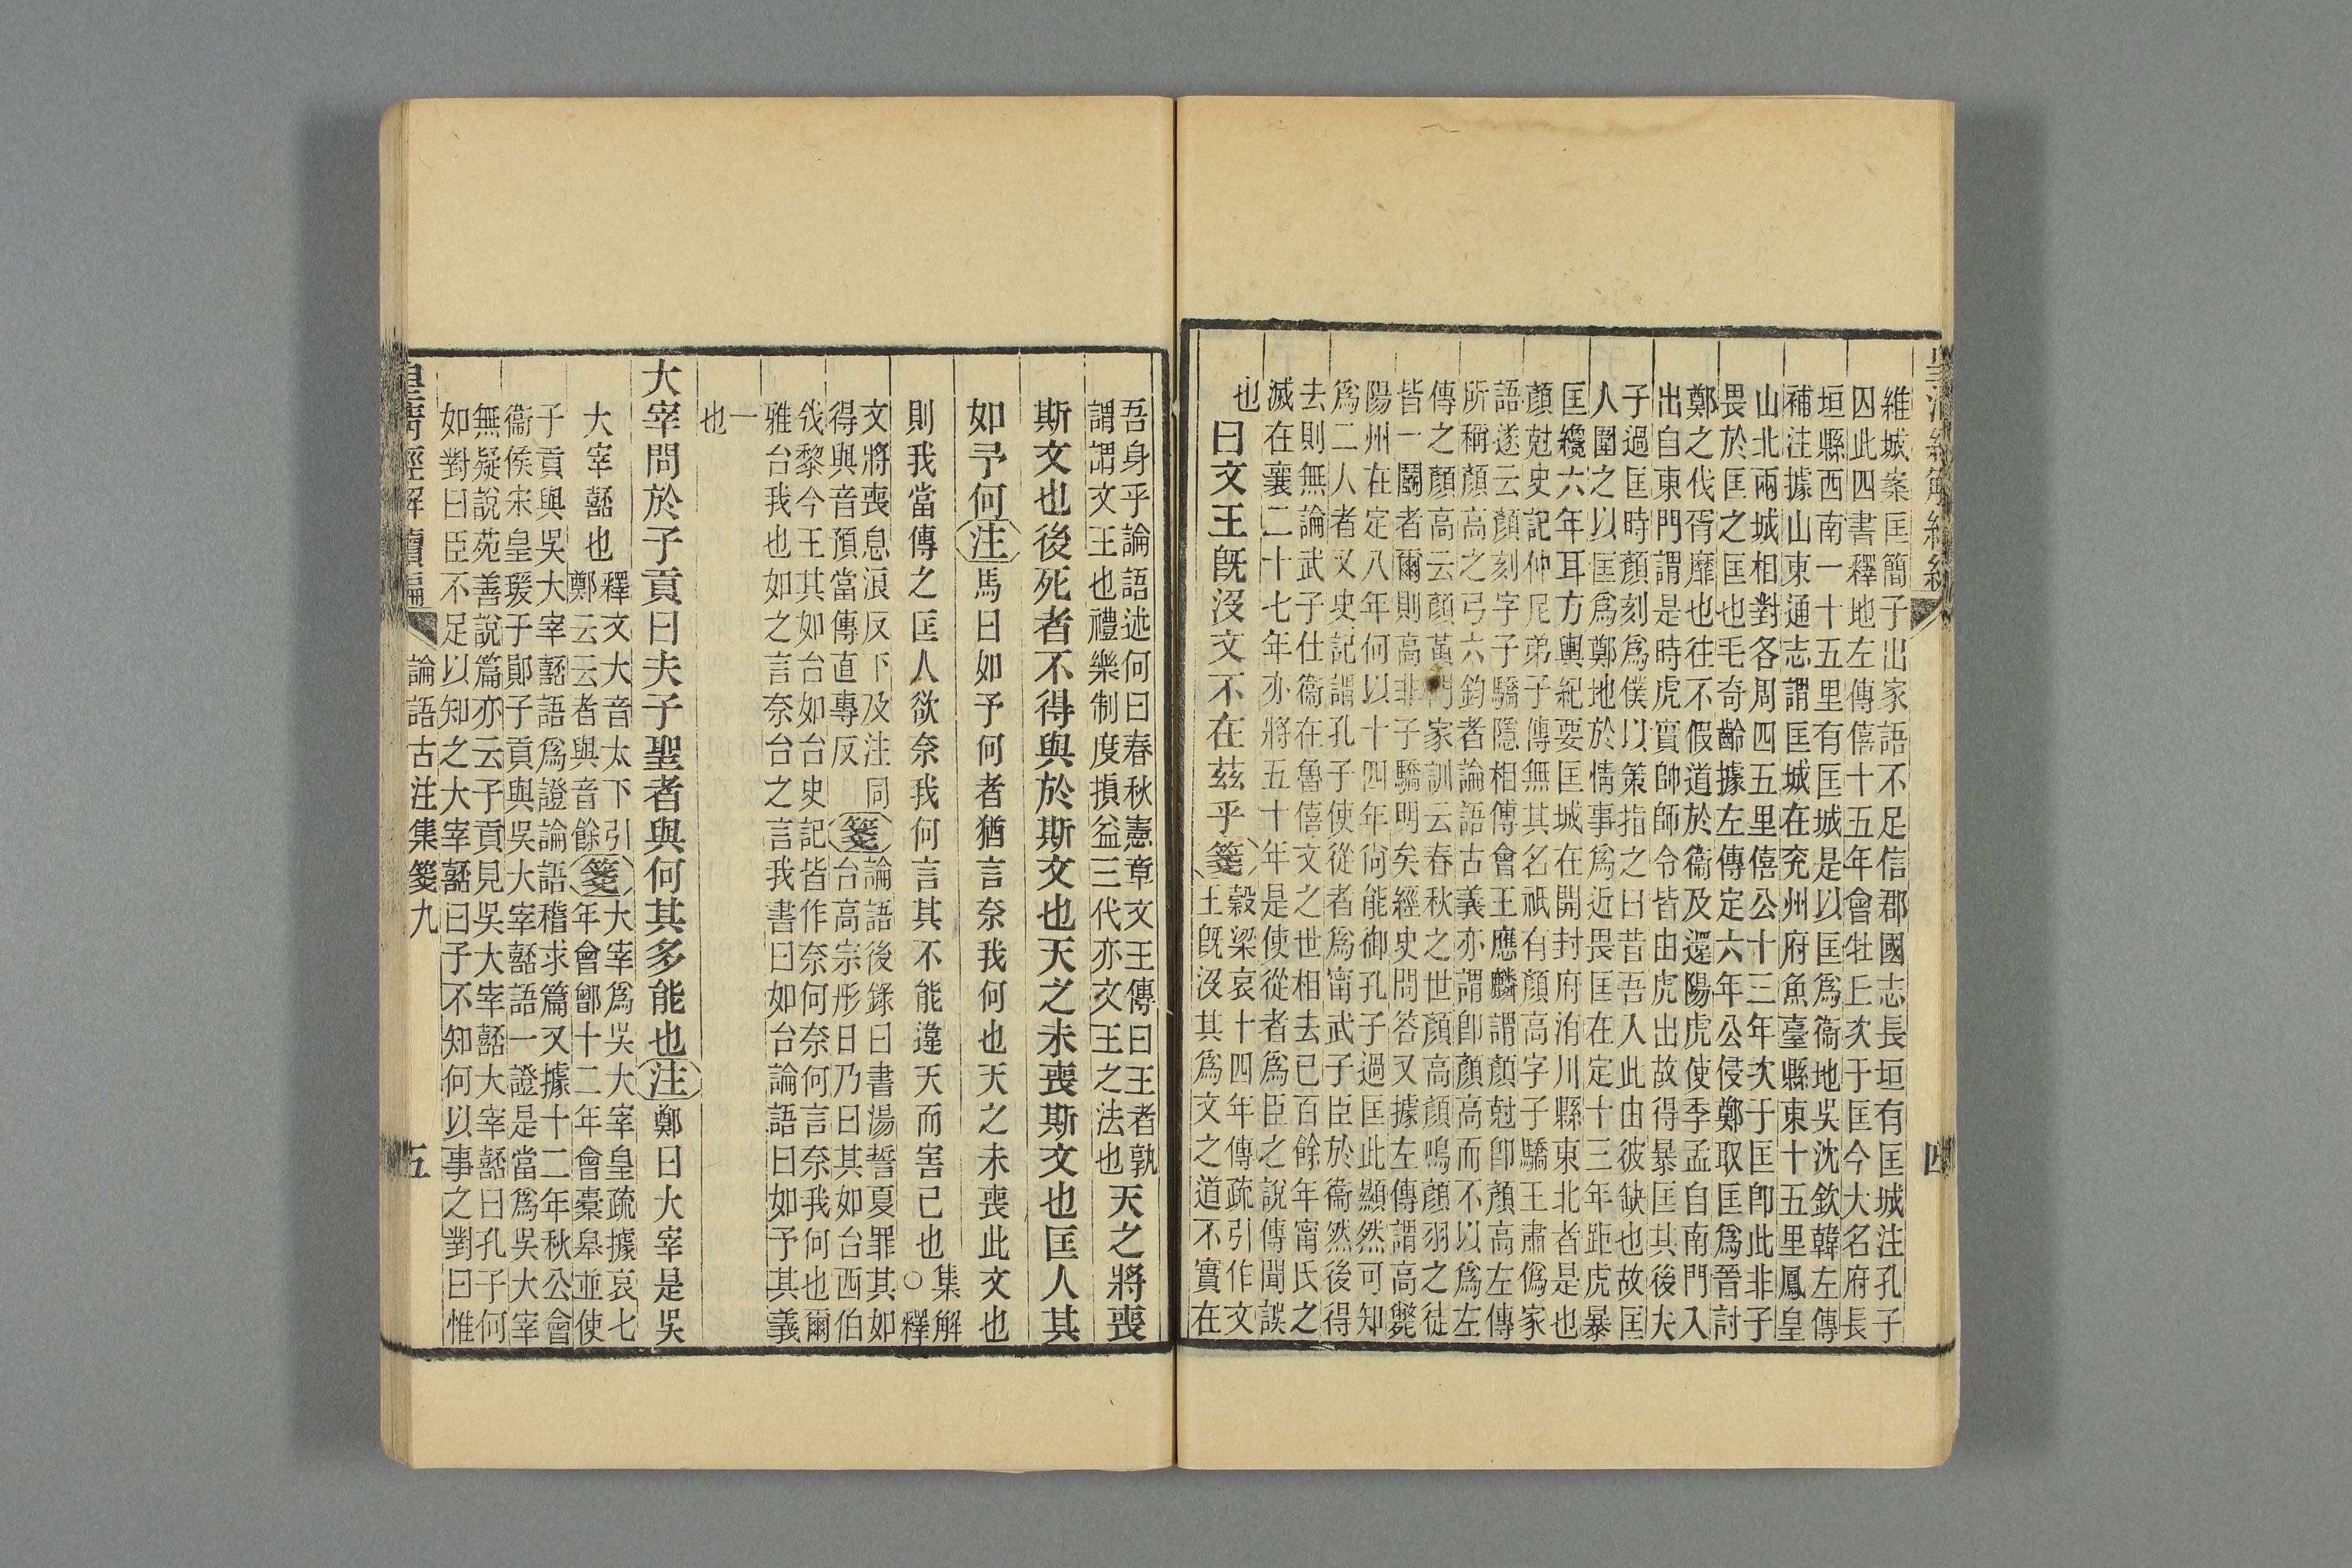 維城案匡簡子出家語不足信郡國志長垣有匡城注孔子
囚此四書釋地左傳僖十五年會牡丘次于匡今大名府長
垣縣西南一十五里有匡城是以匡爲衞地吳沈欽韓左傳
補注據山東通志謂匡城在兖州府魚臺縣東十五里鳳皇
山北兩城相對各周四五里僖公十三年次于匡卽此非子
畏於匡之匡也毛奇齡據左傳定六年公侵鄭取匡爲晉討
鄭之伐胥靡也往不假道於衞及還陽虎使季孟自南門入
出自東門謂是時虎實帥師令皆由虎出故得暴匡其後夫
子過匡時顏刻爲僕以策指之曰昔吾入此由彼缺也故匡
人圍之以匡爲鄭地於情事爲近畏匡在定十三年距虎暴
匡纔六年耳方輿紀要匡城在開封府洧川縣東北者是也
顏尅史記仲尼弟子傳無其名祇有顏高字子驕王肅僞家
語遂云顏刻字子驕隱相傳會王應麟謂顏尅卽顏高左傳
所稱顏高之弓六鈞者論語古義亦謂卽顏高而不以爲左
傳之顏高云顏黃門家訓云春秋之世顏高顏鳴顏羽之徒
皆一鬭者爾則高非子驕明矣經史問答又據左傳謂高斃
陽州在定八年何以十四年尙能御孔子過匡此顯然可知
爲二人者又史記謂孔子使從者爲甯武子臣於衞然後得
去則無論武子仕衞在魯僖文之世相去已百餘年甯氏之
滅在襄二十七年亦將五十年是使從者爲臣之說傳聞誤
也
曰文王旣沒文不在茲乎箋穀梁哀十四年傳疏引作文
王旣沒其爲文之道不實在
吾身乎論語述何曰春秋憲章文王傳曰王者孰
謂謂文王也禮樂制度損益三代亦文王之法也天之將喪
斯文也後死者不得與於斯文也天之未喪斯文也匡人其
如予何注馬曰如予何者猶言奈我何也天之未喪此文也
則我當傳之匡人欲奈我何言其不能違天而害已也集解
○釋
文將喪息浪反下及注同
得與音預當傳直專反箋論語後錄曰書湯誓夏罪其如
台高宗肜日乃曰其如台西伯
戗黎今王其如台如台史記皆作奈何奈何言奈我何也爾
雅台我也如之言奈台之言我書曰如台論語曰如予其義
一
也
大宰問於子貢曰夫子聖者與何其多能也注鄭曰大宰是吳
大宰嚭也釋文大音太下引
鄭云云者與音餘箋大宰爲吳大宰皇疏據哀七
年會鄫十二年會橐臯並使
子貢與吳大宰嚭語爲證論語稽求篇又據十二年秋公會
衞侯宋皇瑗于鄖子貢與吳大宰嚭語一證是當爲吳大宰
無疑說苑善說篇亦云子貢見吳大宰嚭大宰嚭曰孔子何
如對曰臣不足以知之大宰嚭曰子不知何以事之對曰惟
皇清經解續編
論語古注集箋九
五